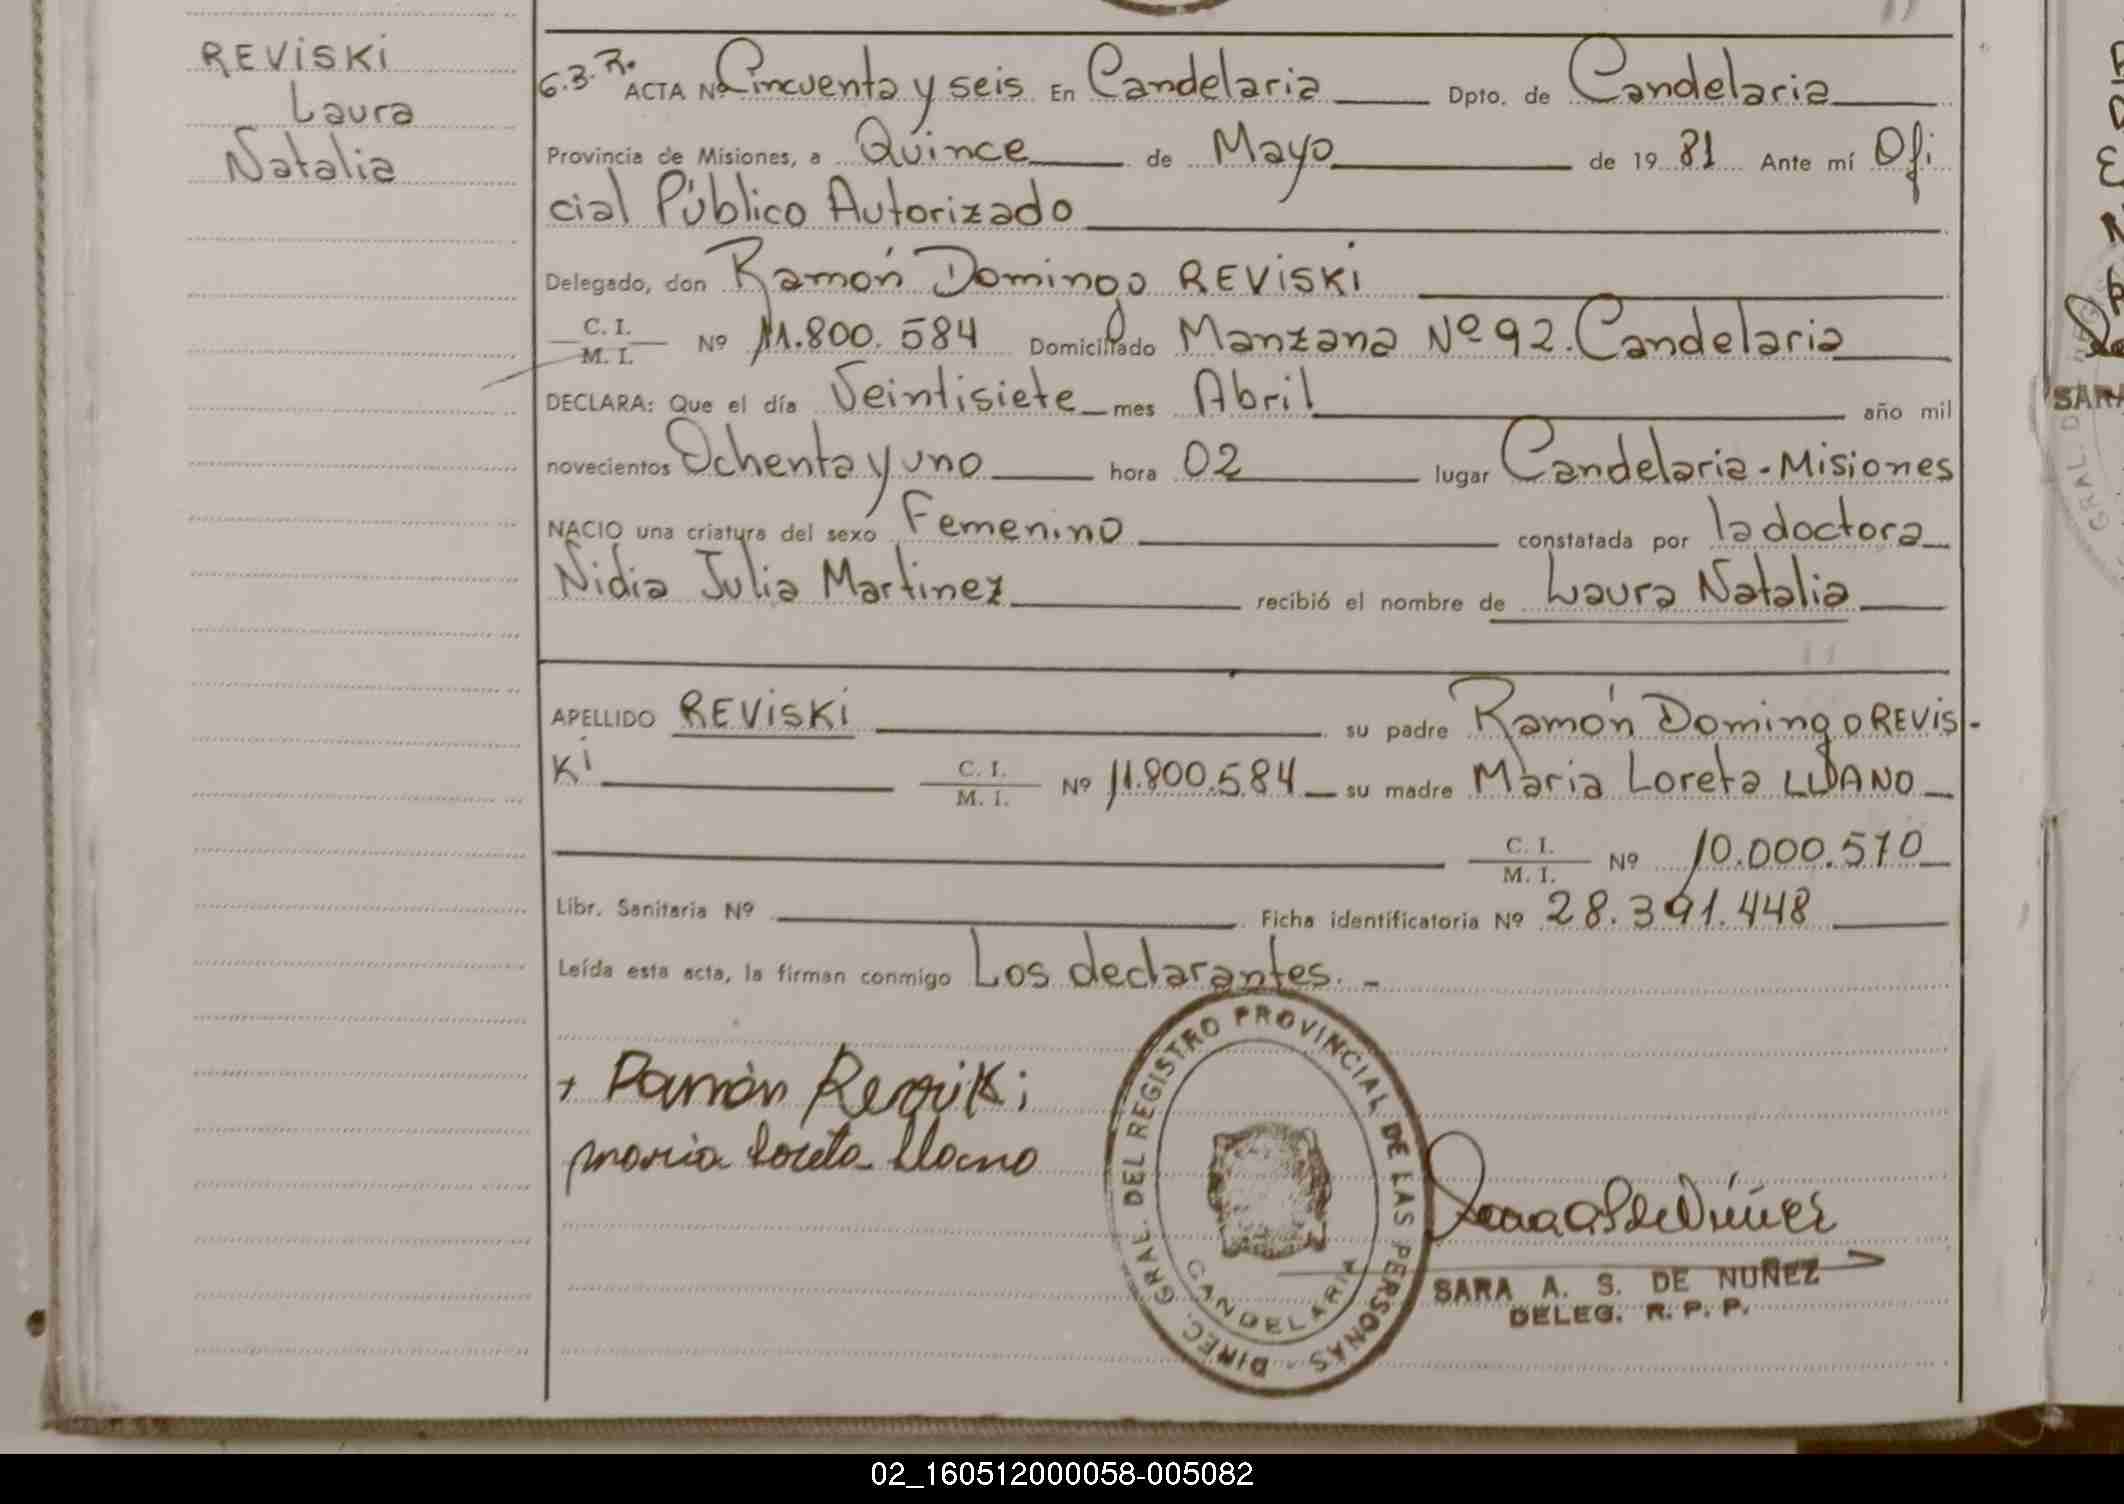 REViSKi
Laura
Natalia
ACTA Nº Cincuenta y seis En Candelaria Dpto. de Candelaria
Provincia de Misiones, a Quince de Mayo de 19 81 Ante mí Ofi
cial Público Autorizado
Delegado, don Ramón Domingo REViSKi
C. I.
M. I. Nº 11.800.584 Domiciliado Manzana Nº 92. Candelaria
DECLARA: Que el día Veintisiete mes Abril año mil
novecientos Ochenta y uno hora 02 lugar Candelaria - Misiones
NACIO una criatura del sexo Femenino constatada por la doctora
Nidia Julia Martinez recibió el nombre de Laura Natalia
APELLIDO REViSKi su padre Ramón Domingo REViS-
Ki C. I.
M. I. Nº 11.800.584 su madre Maria Loreta
C. I.
M. I. Nº 10.000.570
Libr. Sanitaria Nº Ficha identificatoria Nº 28.391.448
Leída esta acta, la firman conmigo Los declarantes. -
Ramón
maria loreta llano
DIREC. GRAL. DEL REGISTRO PROVINCIAL DE LAS PERSONAS
CANDELARIA
SARA A. S. DE NUÑEZ
DELEG. R. P. P.
02_160512000058-005082